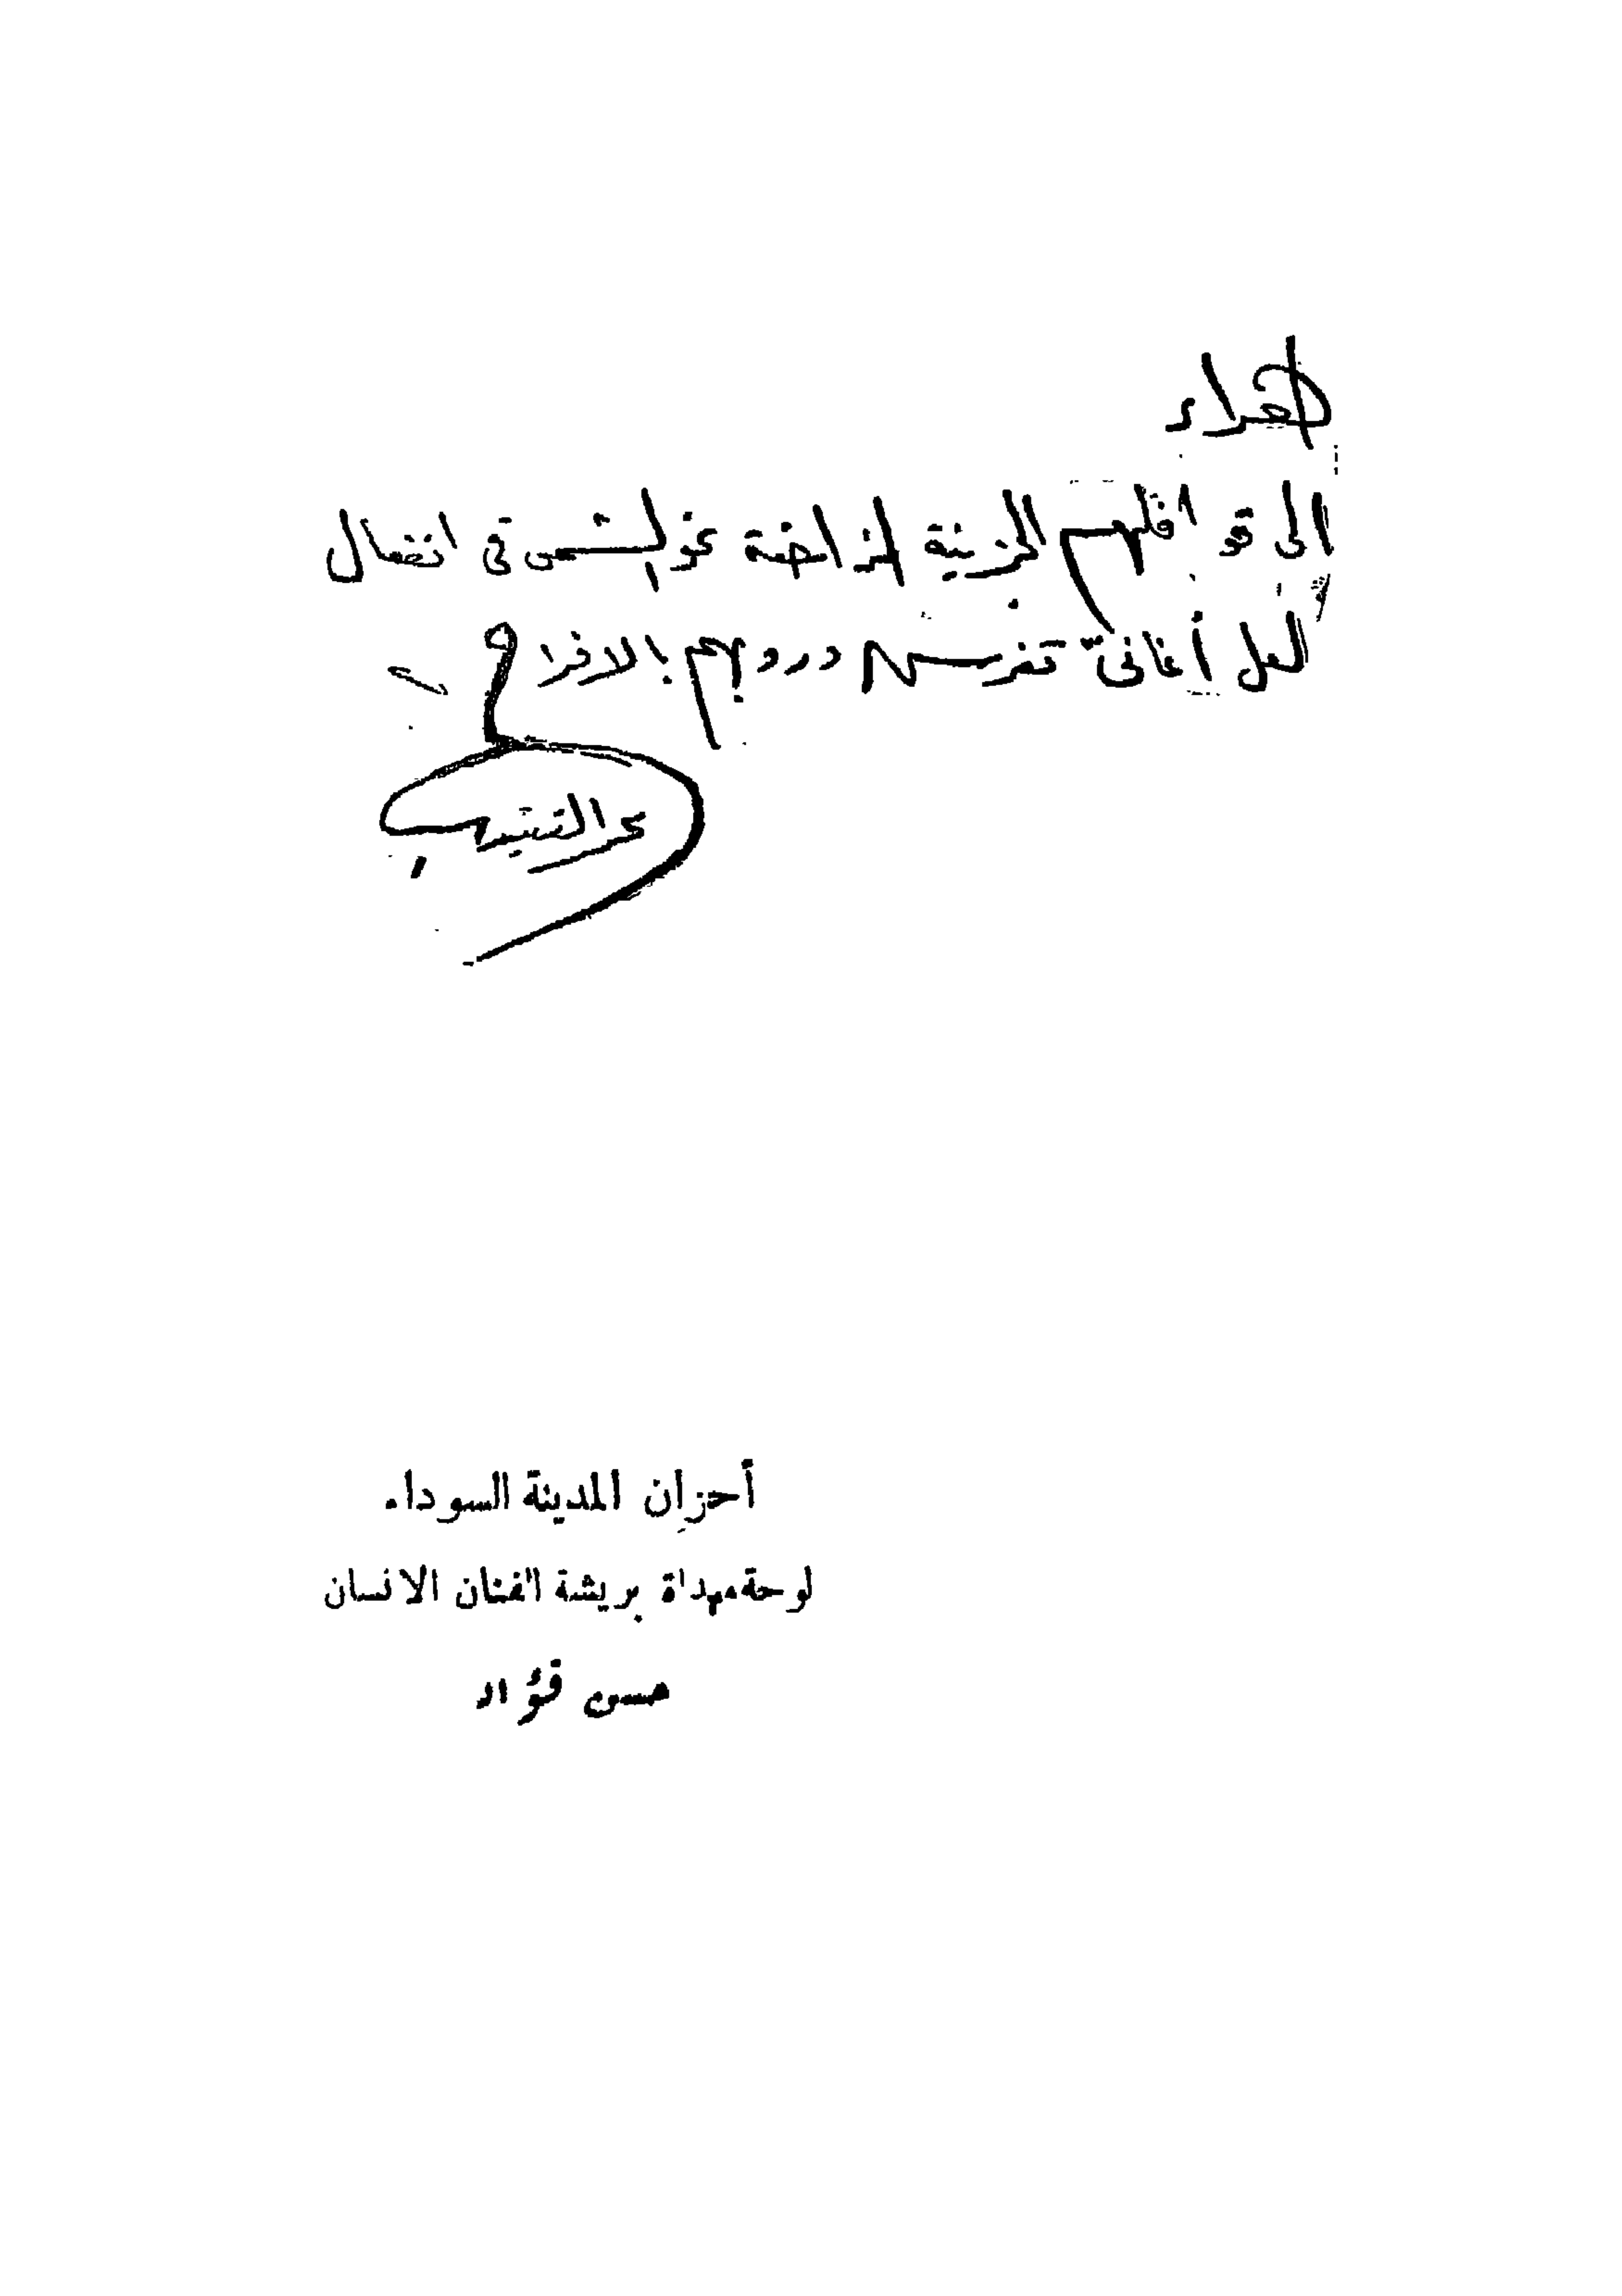 اهداء
الى قوافلهم الحزينة الراكضة نحو الشمس فى انفعال
لعل أغانىّ تغرس دروبهم بالافراح
أحزان المدينة السوداء
لوحة مهداة بريشة الفنان الانسان
حسن فؤاد